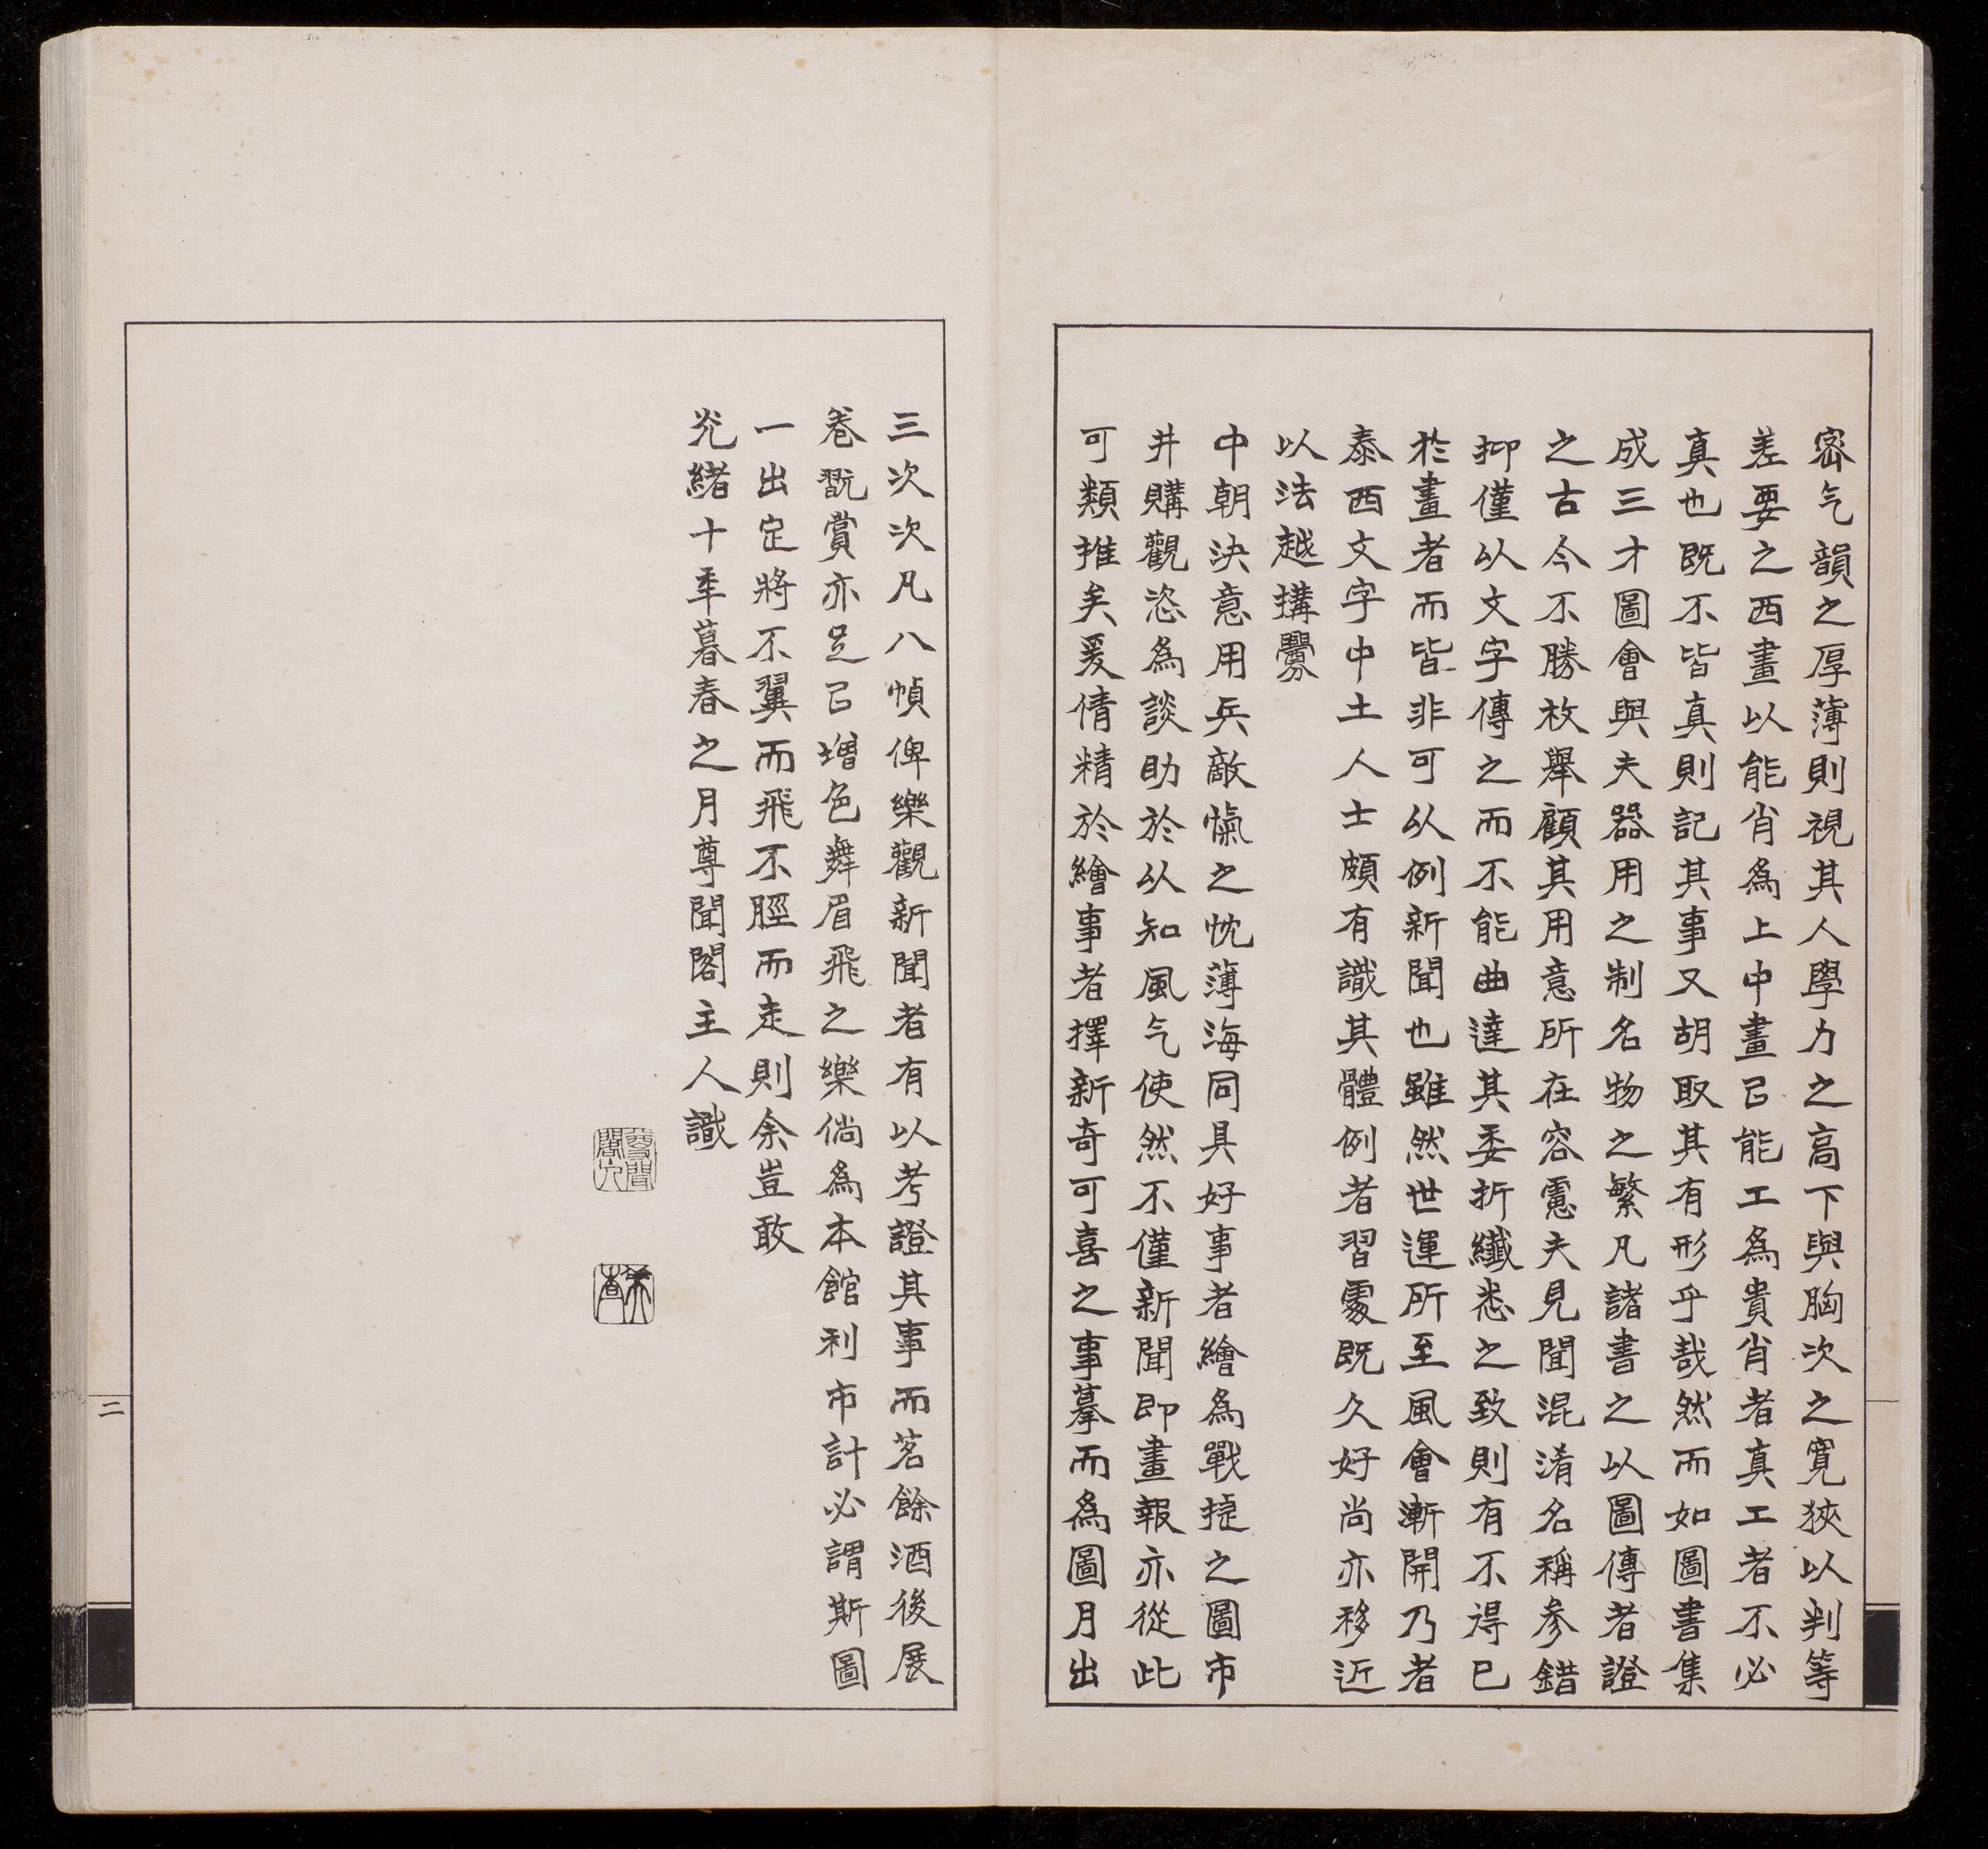 密气韻之厚薄則視其人學力之高下與胸次之寬狹以判等
差要之西畫以能肖爲上中畫以能工爲貴肖者真工者不必
真也既不皆真則記其事又胡取其有形乎哉然而如圖書集
成三才圖會與夫器用之制名物之繁凡諸書之以圖傳者證
之古今不勝枚舉顧其用意所在容慮夫見聞混淆名稱参錯
抑僅以文字傳之而不能曲達其委折纖悉之致則有不得已
於畫者而皆非可以例新聞也雖然世運所至風會漸開乃者
泰西文字中土人士頗有識其體例者習處既久好尚亦移近
以法越搆釁
中朝決意用兵敵愾之忱薄海同具好事者繪爲戰捷之圖市
井購觀恣爲談助於以知風气使然不僅新聞即畫報亦從此
可類推矣爰倩精於繪事者擇新奇可喜之事摹而爲圖月出
三次次凡八幀俾樂觀新聞者有以考證其事而茗餘酒後展
卷翫賞亦足以增色舞眉飛之樂倘爲本館利市計必謂斯圖
一出定將不翼而飛不脛而走則余豈敢
光緒十年暮春之月尊聞閣主人識
尊聞閣人
美查
二